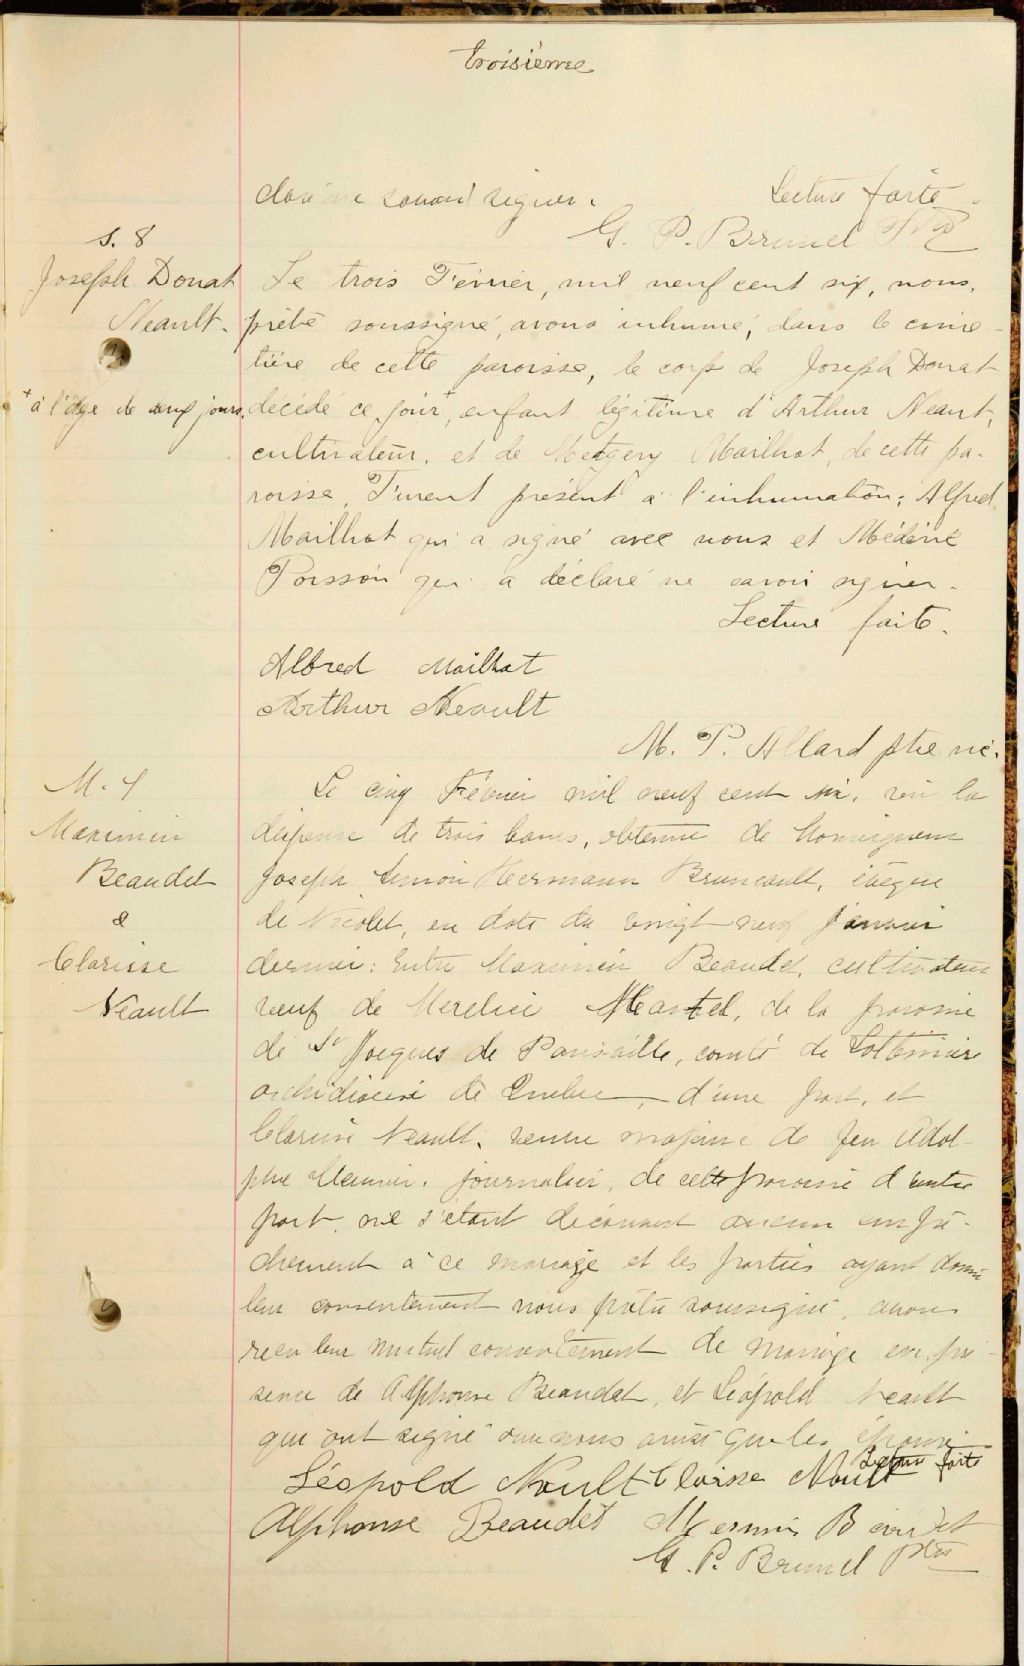 troisième
signer. Lecture faite.
G. P. Brunel Ptre
S. 8
Joseph Donat
Neault.
Le trois Février, mil neuf cent six, nous,
prêtre soussigné, avons inhumé, dans le cime-
tière de cette paroisse, le corps de Joseph Donat
+ à l'âge de deux jours, décédé ce jour +, enfant légitime d'Arthur Neault,
cultivateur, et de Mailhot, de cette pa-
roisse, Furent présent à l'inhumation; Alfred
Mailhot qui a signé avec nous et Médéric
Poisson qui a déclaré ne savoir signer.
Lecture faite.
Alfred Mailhot
Arthur Neault
M. P. Allard ptre vic.
M. 4
Maximin
Beaudet
&
Clarisse
Neault
Le cinq Février mil neuf cent six, vu la
dispense de trois bans, obtenue de Monseigneur
Joseph Simon Hermann Bruneault, évêque
de Nicolet, en date du vingt neuf janvier
dernier: Entre Maximin Beaudet, cultivateur
veuf de Martel, de la paroisse
de St Jacques de Parisville, comté de Lotbinière
archidiocèse de Québec, d'une part, et
Clarisse Neault, veuve majeure de feu Adol-
phe journalier, de cette paroisse d'autre
part, ne s'étant découvert aucun empê-
chement à ce mariage et les parties ayant donné
leur consentement nous prêtre soussigné, avons
recu leur mutuel consentement de mariage en pré-
sence de Alphonse Beaudet, et Léopold Neault
qui ont signé avec nous ainsi que les époux
Lecture faite
Léopold Noult Claisse Noult
Alphonse Beaudet Beaudet
G. P. Brunel Ptre